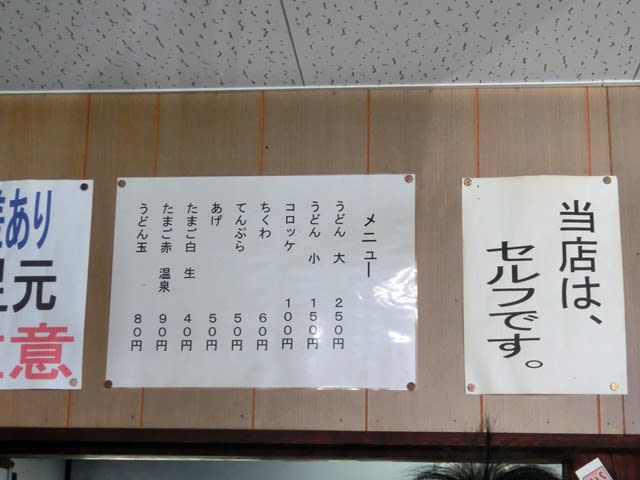 当店は、
セルフです。
メニュー
うどん 大 250円
うどん 小 150円
コロッケ 100円
ちくわ 60円
てんぷら 50円
あげ 50円
たまご白 生 40円
たまご赤 温泉 90円
うどん玉 80円
差あり
足元
注意